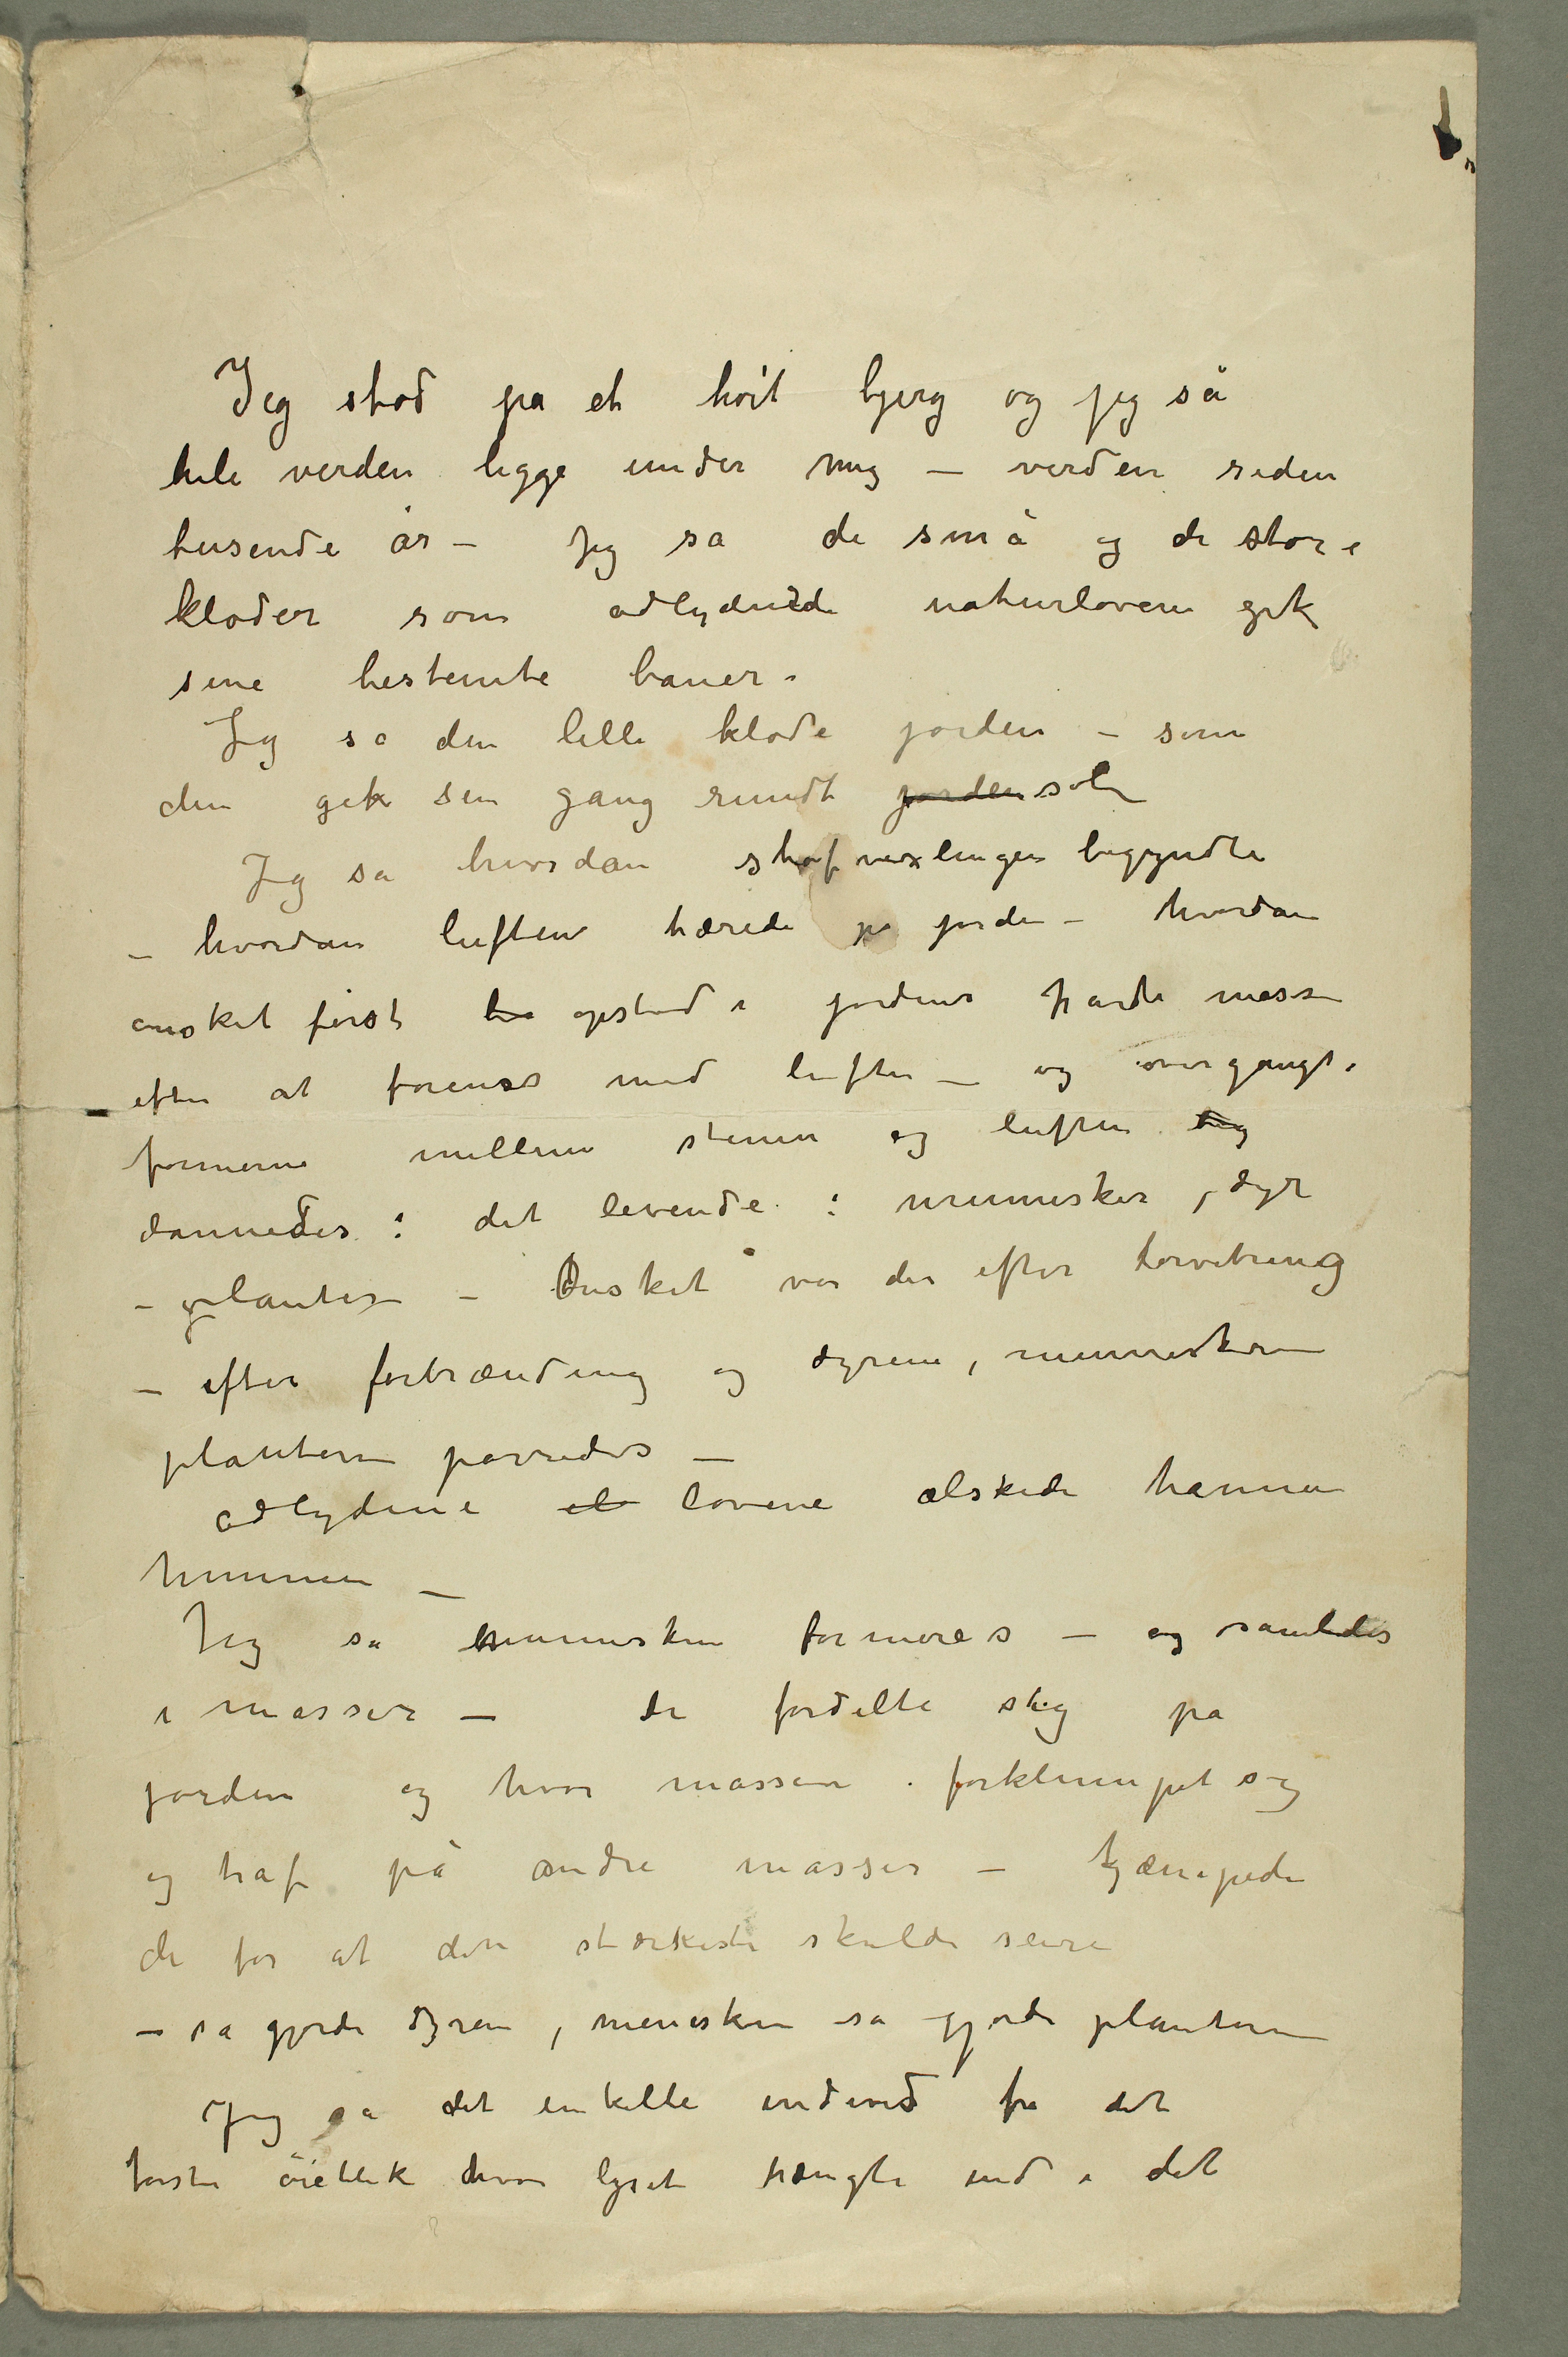 Jeg stod pa et höit bjerg og jeg så
hele verden ligge under mig – verden siden
tusende år – Jeg sa de små og de store
kloder som adlydende naturlovene gik
sine bestemte baner.
Jeg sa den lille klode jorden – som
den gik sin gang rundt jorden solen
Jeg sa hvordan stofvexlingen begyndte
– hvordan luften tærede på jorden – hvordan
ønsket først opstod i jordens hårde masse
efter at forenes med luften – og overgangs-
formerne mellem stenen og luften
dannedes: det levende: mennesker, dyr
– planter – Ønsket var der efter forvitring
– efter forbrænding og dyrene, menneskene
planterne parredes –
adlydene lovene elskede hannen
hunnen –
Jeg sa menneskene formeres – og samledes
i masser – de fordelte sig pa
jorden og hvor massen forklumpet sig
og traf på andre masser – kjæmpede
de for at den stærkeste skulde seire
– sa gjorde dyrene, meneskene sa gjorde planterne
Jeg sa det enkelte individ fra det
første öieblik hvor lyset trængte ind i det